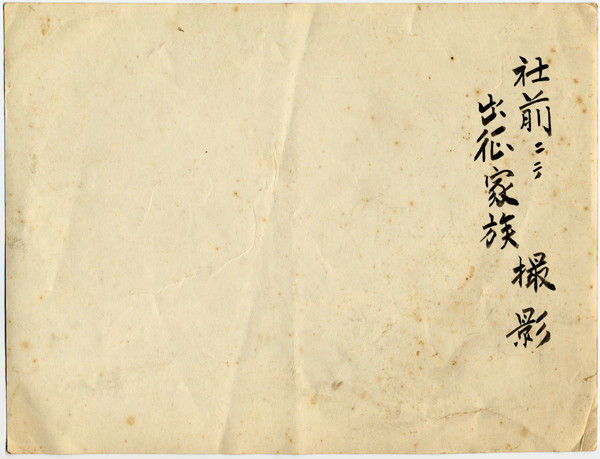 社前ニテ
出征家族
撮影